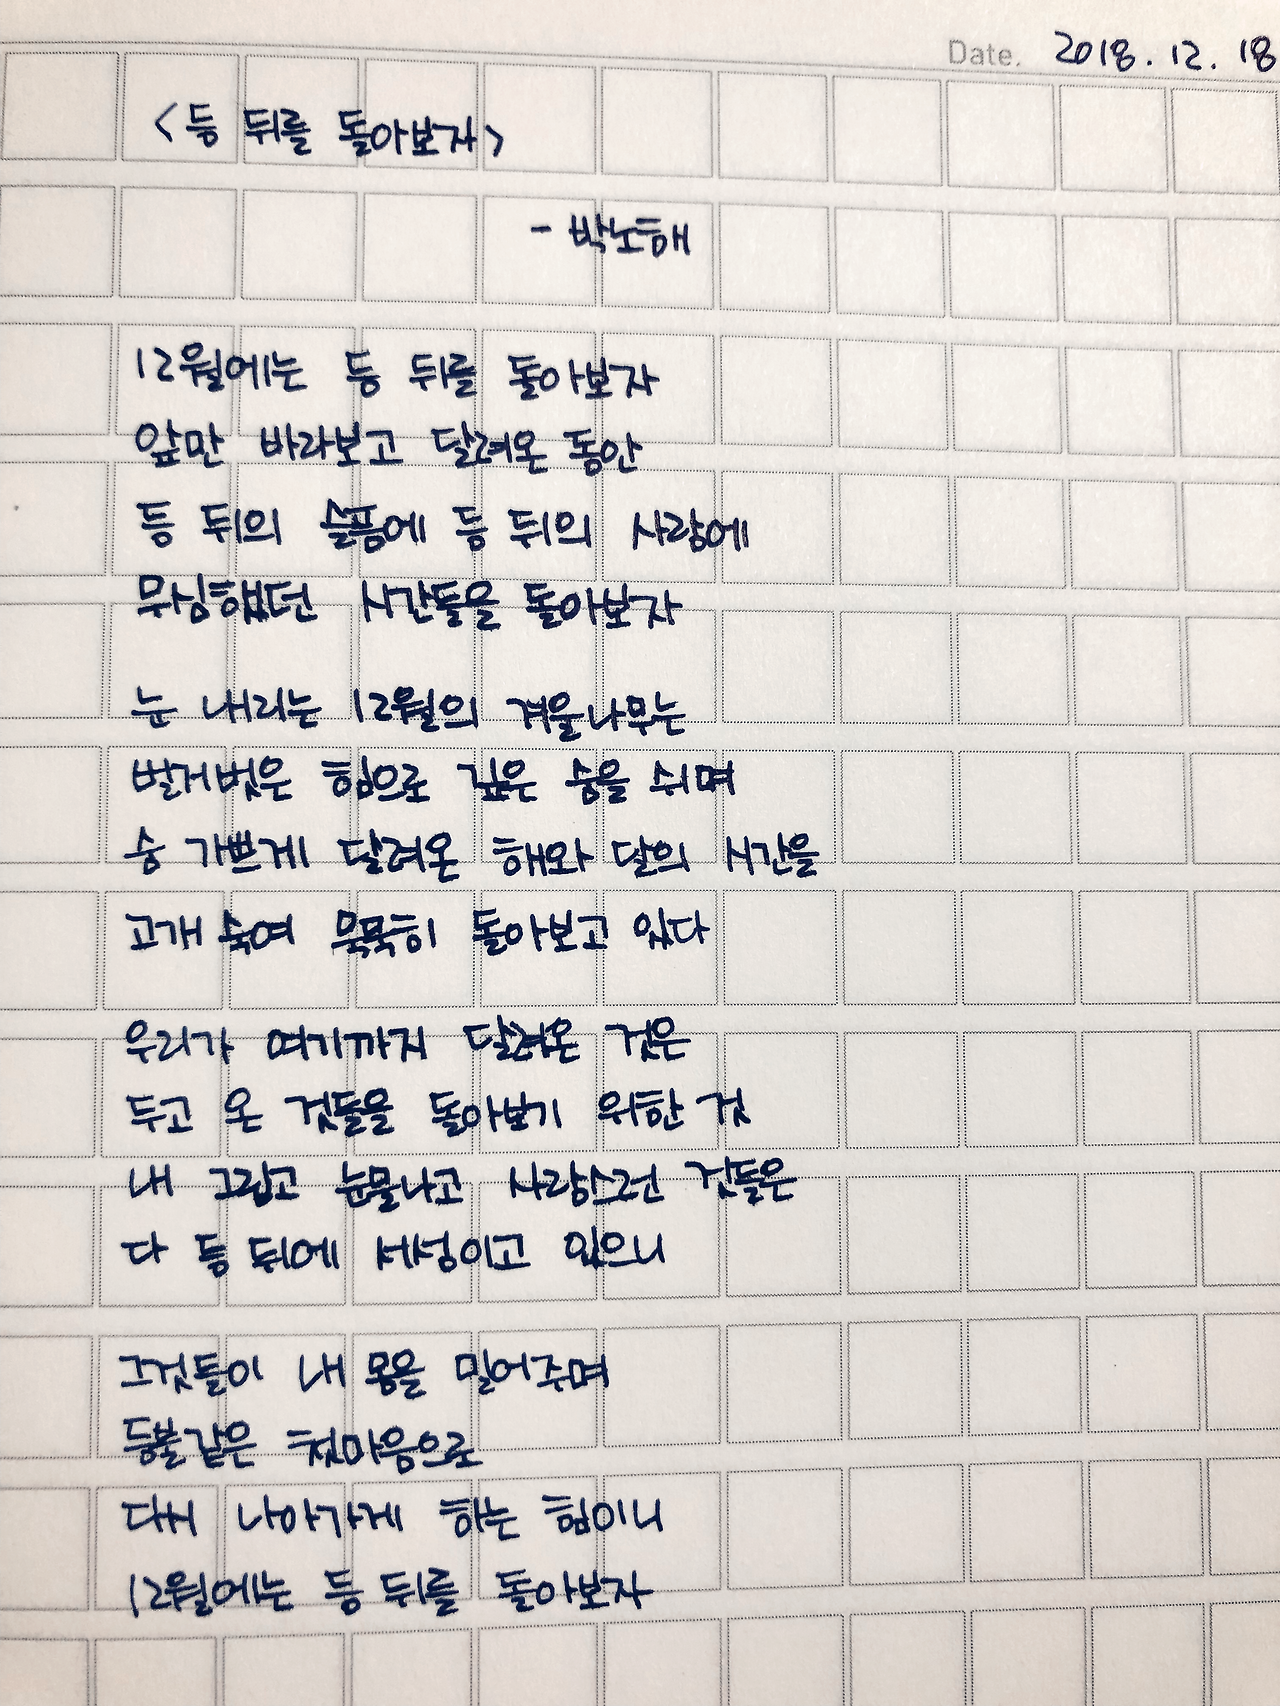 Date. 2018. 12. 18
<등 뒤를 돌아보자>
- 박노해
12월에는 등 뒤를 돌아보자
앞만 바라보고 달려온 동안
등 뒤의 슬픔에 등 뒤의 사랑에
무심했던 시간들을 돌아보자
눈 내리는 12월의 겨울나무는
벌거벗은 힘으로 깊은 숨을 쉬며
숨 가쁘게 달려온 해와 달의 시간을
고개 숙여 묵묵히 돌아보고 있다
우리가 여기까지 달려온 것은
두고 온 것들을 돌아보기 위한 것
내 그립고 눈물나고 사랑스런 것들은
다 등 뒤에 서성이고 있으니
그것들이 내 몸을 밀어주며
등불같은 첫마음으로
다시 나아가게 하는 힘이니
12월에는 등 뒤를 돌아보자